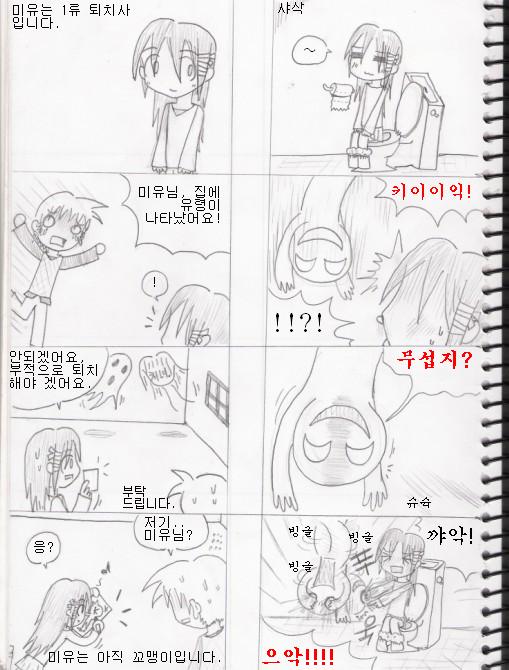 미유는 1류 퇴치사
입니다.
미유님, 집에
유령이
나타났어요!
!
안되겠어요,
부적으로 퇴치
해야 겠어요.
부탁
드립니다.
저기..
미유님?
응?
미유는 아직 꼬맹이입니다.
샤삭
~
키이이익!
!!?!
무섭지?
슈슉
빙글
빙글
빙글
꺄악!
으악!!!!